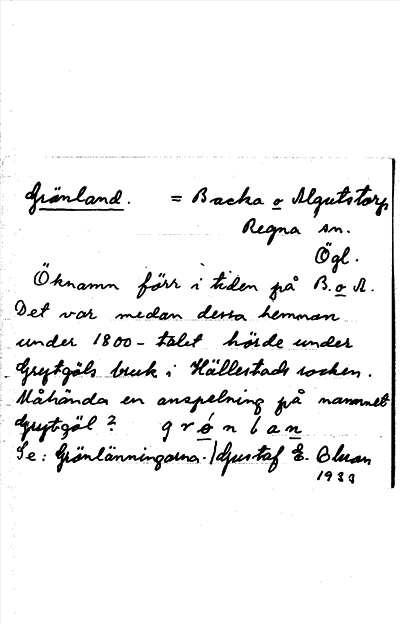 Grönland. = Backa o Algutstorp,
Regna sn.
Ögl.
Öknamn förr i tiden på B. o A.
Det var medan dessa hemman
under 1800-talet hörde under
Grytgöls bruk i Hällestads socken.
Måhända en anspelning på namnet
Grytgöl? grönlan
Se: Grönlänningarna. / Gustaf E.
1933